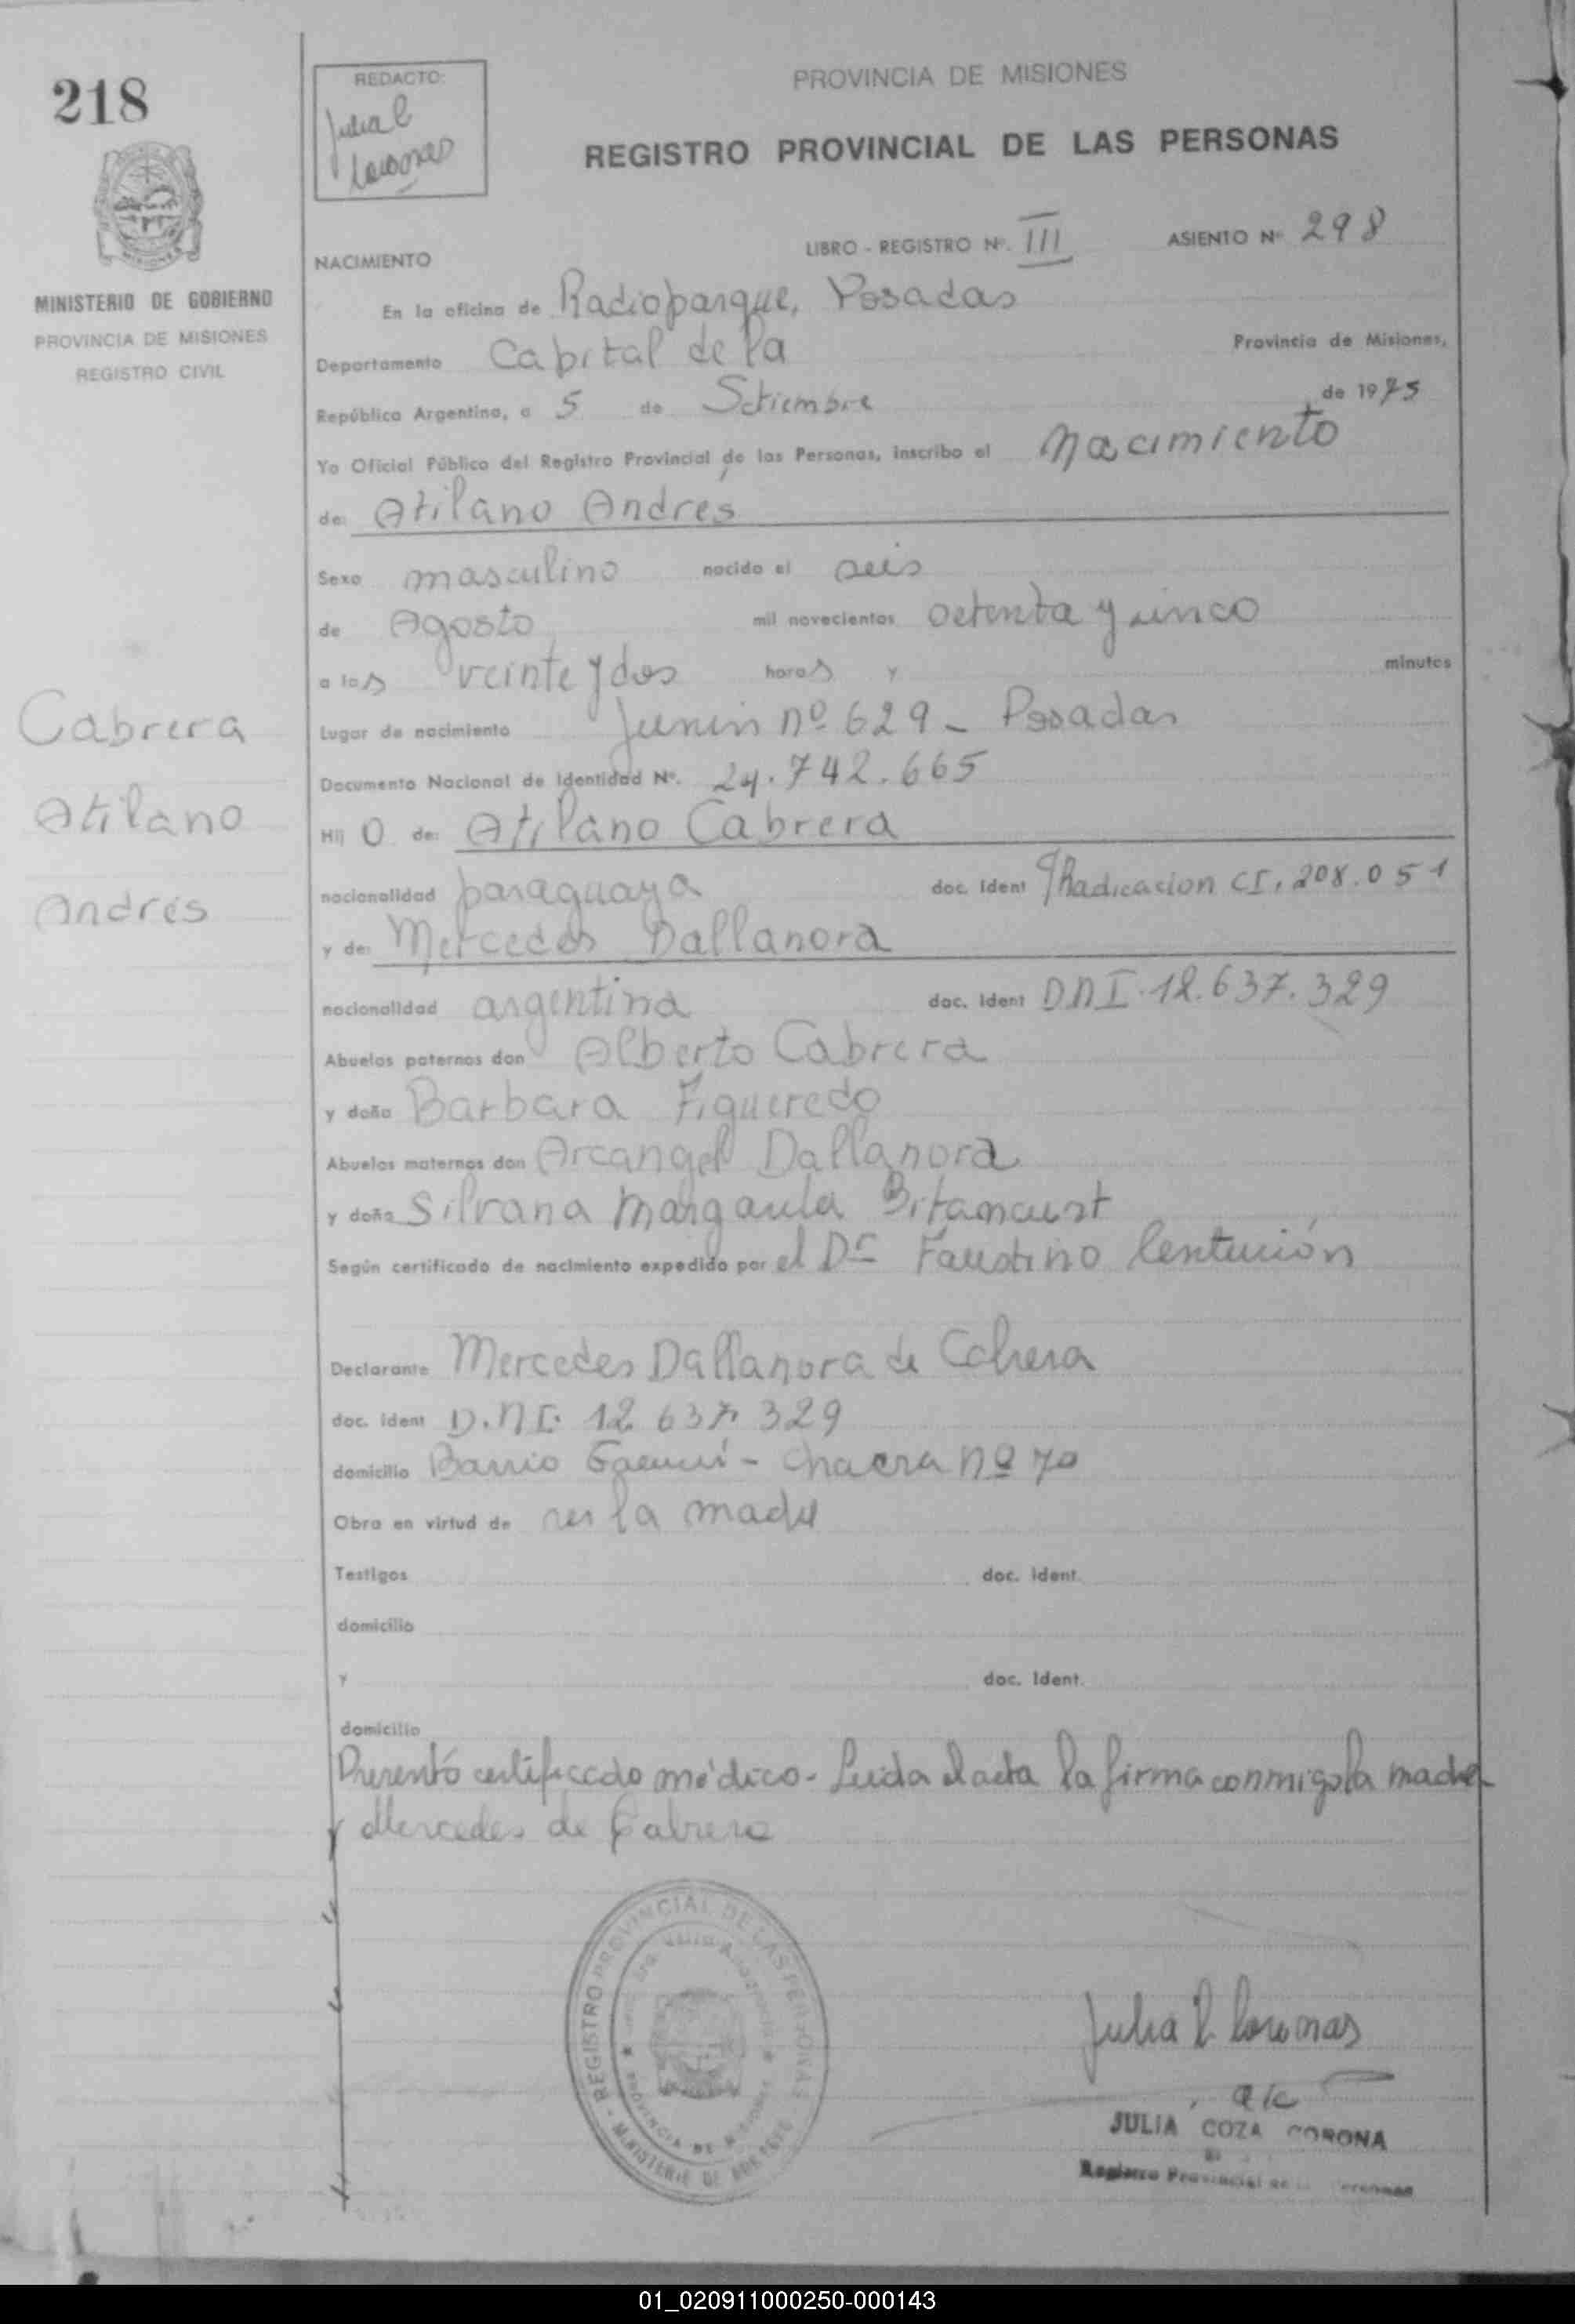 218
REDACTO:
Julia C
PROVINCIA DE MISIONES
REGISTRO PROVINCIAL DE LAS PERSONAS
MINISTERIO DE GOBIERNO
PROVINCIA DE MISIONES
REGISTRO CIVIL
NACIMIENTO
LIBRO - REGISTRO Nº. III ASIENTO Nº 298
En la oficina de Radioparque, Posadas
Departamento Capital de la Provincia de Misiones,
República Argentina, a 5 de Setiembre de 1975
Yo Oficial Público del Registro Provincial de las Personas, inscribo el Nacimiento
de: Atilano Andrés
Sexo masculino nacido el seis
de Agosto mil novecientos setenta y cinco
a las veinte y dos horas y minutos
Lugar de nacimiento Junin nº 629 - Posadas
Documento Nacional de Identidad Nº. 24.742.665
Hij o de: Atilano Cabrera
nacionalidad paraguaya doc. Ident Radicacion CI. 208.051
y de: Mercedes Dallanora
nacionalidad argentina doc. Ident DNI. 12.637.329
Abuelos paternos don Alberto Cabrera
y doña Barbara Figueredo
Abuelos maternos don Arcangel Dallanora
y doña Silvana Margarita
Según certificado de nacimiento expedido por el Dr Faustino Centurión
Declarante Mercedes Dallanora de Cabrera
doc. ident D.N.I. 12 637 329
domicilio Barrio - Chacra nº 70
Obra en virtud de ser la madre
Testigos doc. ident.
domicilio
y doc. Ident.
domicilio
Presentó certificado médico - Leida el acta la firma conmigo la madre
Mercedes de Cabrera
Cabrera
Atilano
Andrés
REGISTRO PROVINCIAL DE LAS PERSONAS
PROVINCIA DE MISIONES
Julia C
a/c
JULIA COZA CORONA
Registro Provincial de
01_020911000250-000143